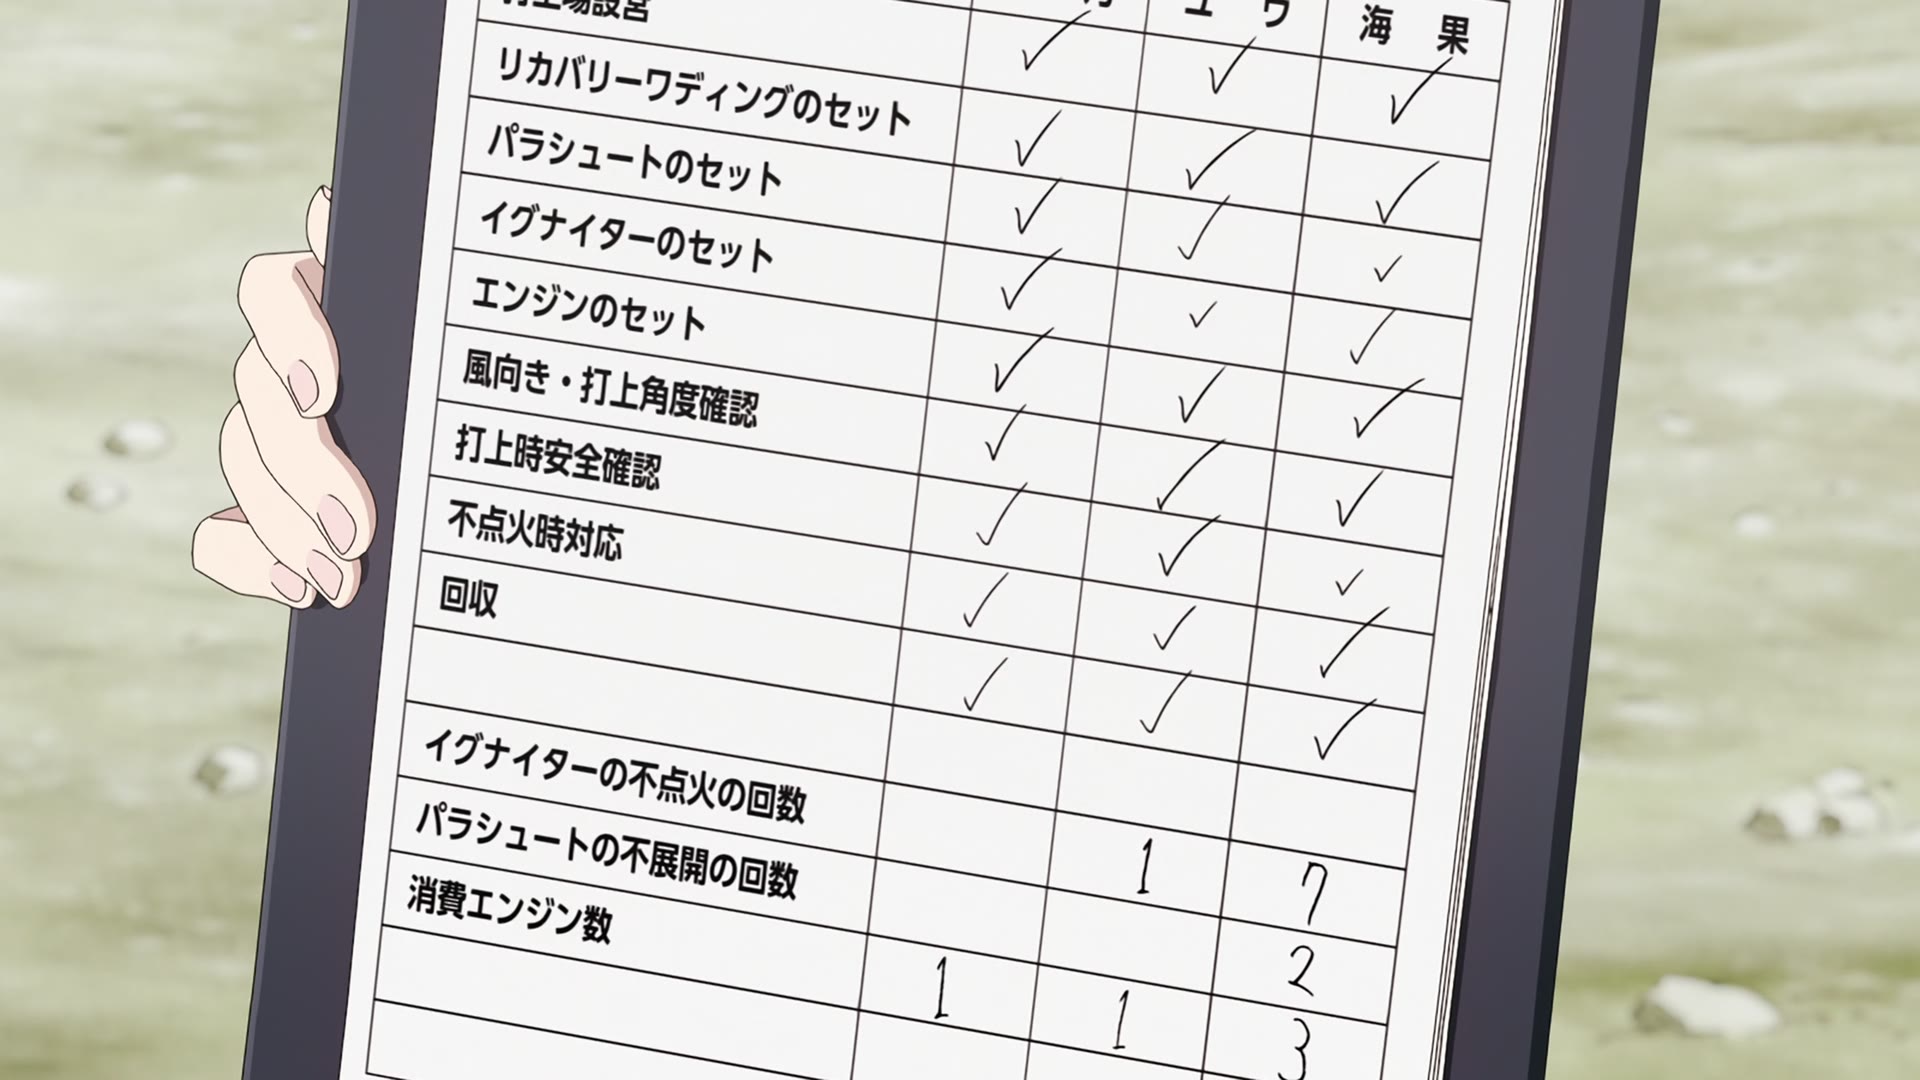 打上場設営 ✓ ✓ ✓
ユウ 海果
リカバリーワディングのセット ✓ ✓ ✓
パラシュートのセット ✓ ✓ ✓
イグナイターのセット ✓ ✓ ✓
エンジンのセット ✓ ✓ ✓
風向き・打上角度確認 ✓ ✓ ✓
打上時安全確認 ✓ ✓ ✓
不点火時対応 ✓ ✓ ✓
回収 ✓ ✓ ✓
イグナイターの不点火の回数 1 7
パラシュートの不展開の回数 2
消費エンジン数 1 1 3